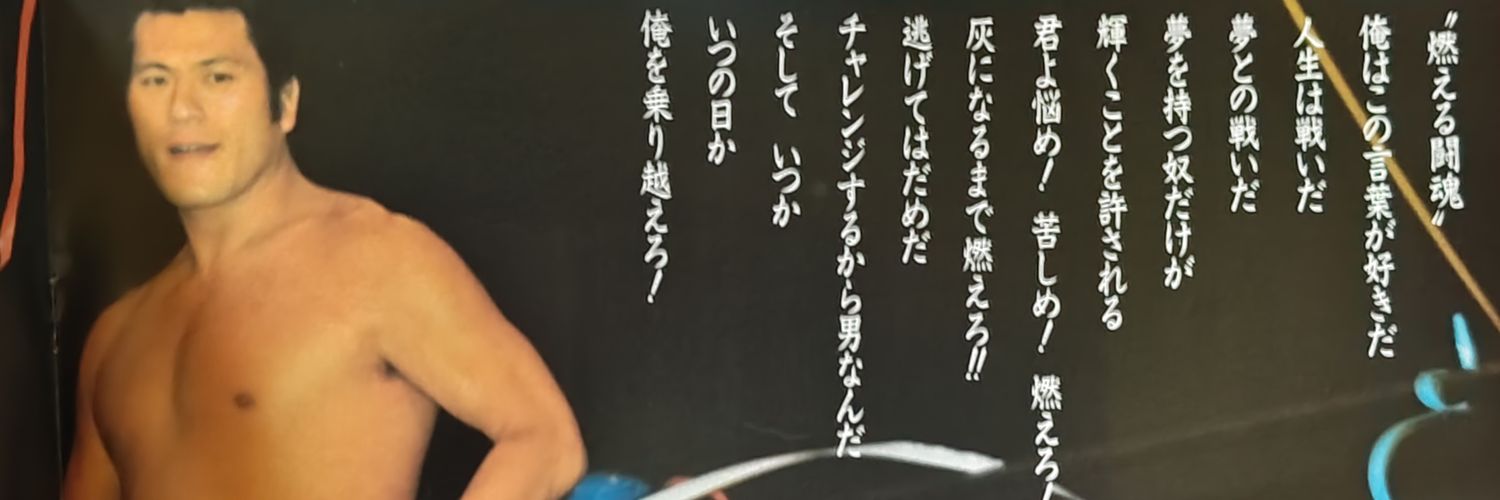 〝燃える闘魂〟
俺はこの言葉が好きだ
人生は戦いだ
夢との戦いだ
夢を持つ奴だけが
輝くことを許される
君よ悩め！ 苦しめ！ 燃えろ！
灰になるまで燃えろ!!
逃げてはだめだ
チャレンジするから男なんだ
そして いつか
いつの日か
俺を乗り越えろ！